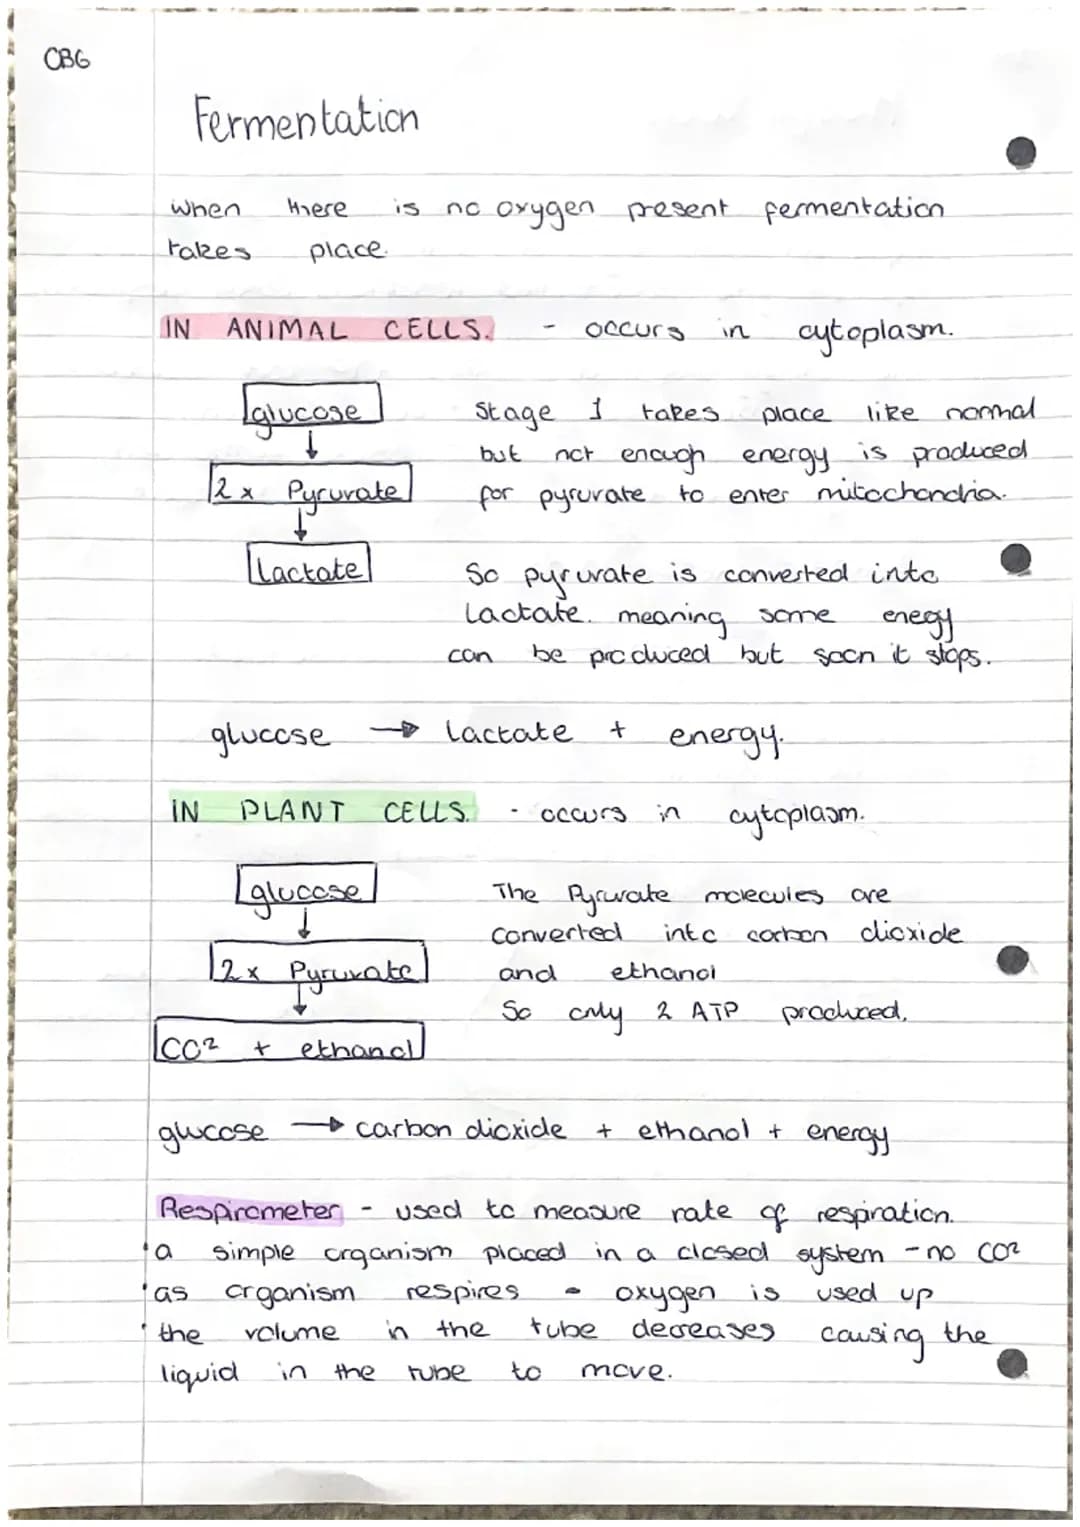 CB6
Fermentation
When there is no oxygen present fermentation
takes place.
IN ANIMAL CELLS. - occurs in cytoplasm.
glucose
Stage 1 takes place like normal
but not enough energy is produced
2 x Pyruvate
for pyruvate to enter mitochondria.
Lactate
So pyruvate is converted into
Lactate. meaning some enegy
can be produced but soon it stops.
glucose → lactate + energy.
IN PLANT CELLS. - occurs in cytoplasm.
glucose
The Pyruvate molecules are
converted into carbon dioxide
2 x Pyruvate
and ethanol
So only 2 ATP produced.
CO² + ethanol
glucose → carbon dioxide + ethanol + energy
Respirometer - used to measure rate of respiration.
• a simple organism placed in a closed system - no CO²
• as organism respires - oxygen is used up
• the volume in the tube decreases causing the
liquid in the tube to move.